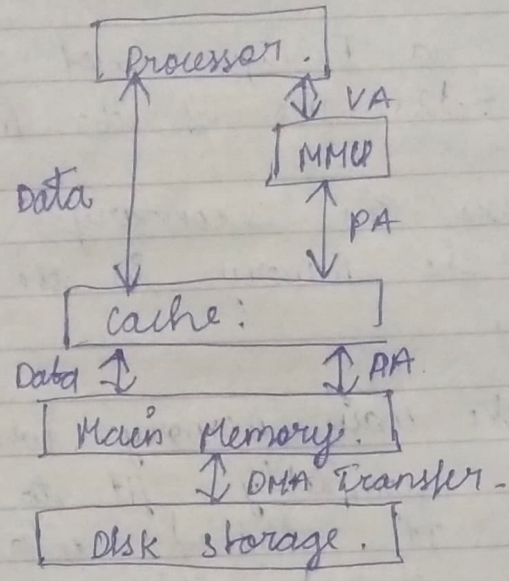 Processor.
VA
MMU
Data
PA
Cache:
Data
PA.
Main Memory.
DMA Transfer.
Disk storage.